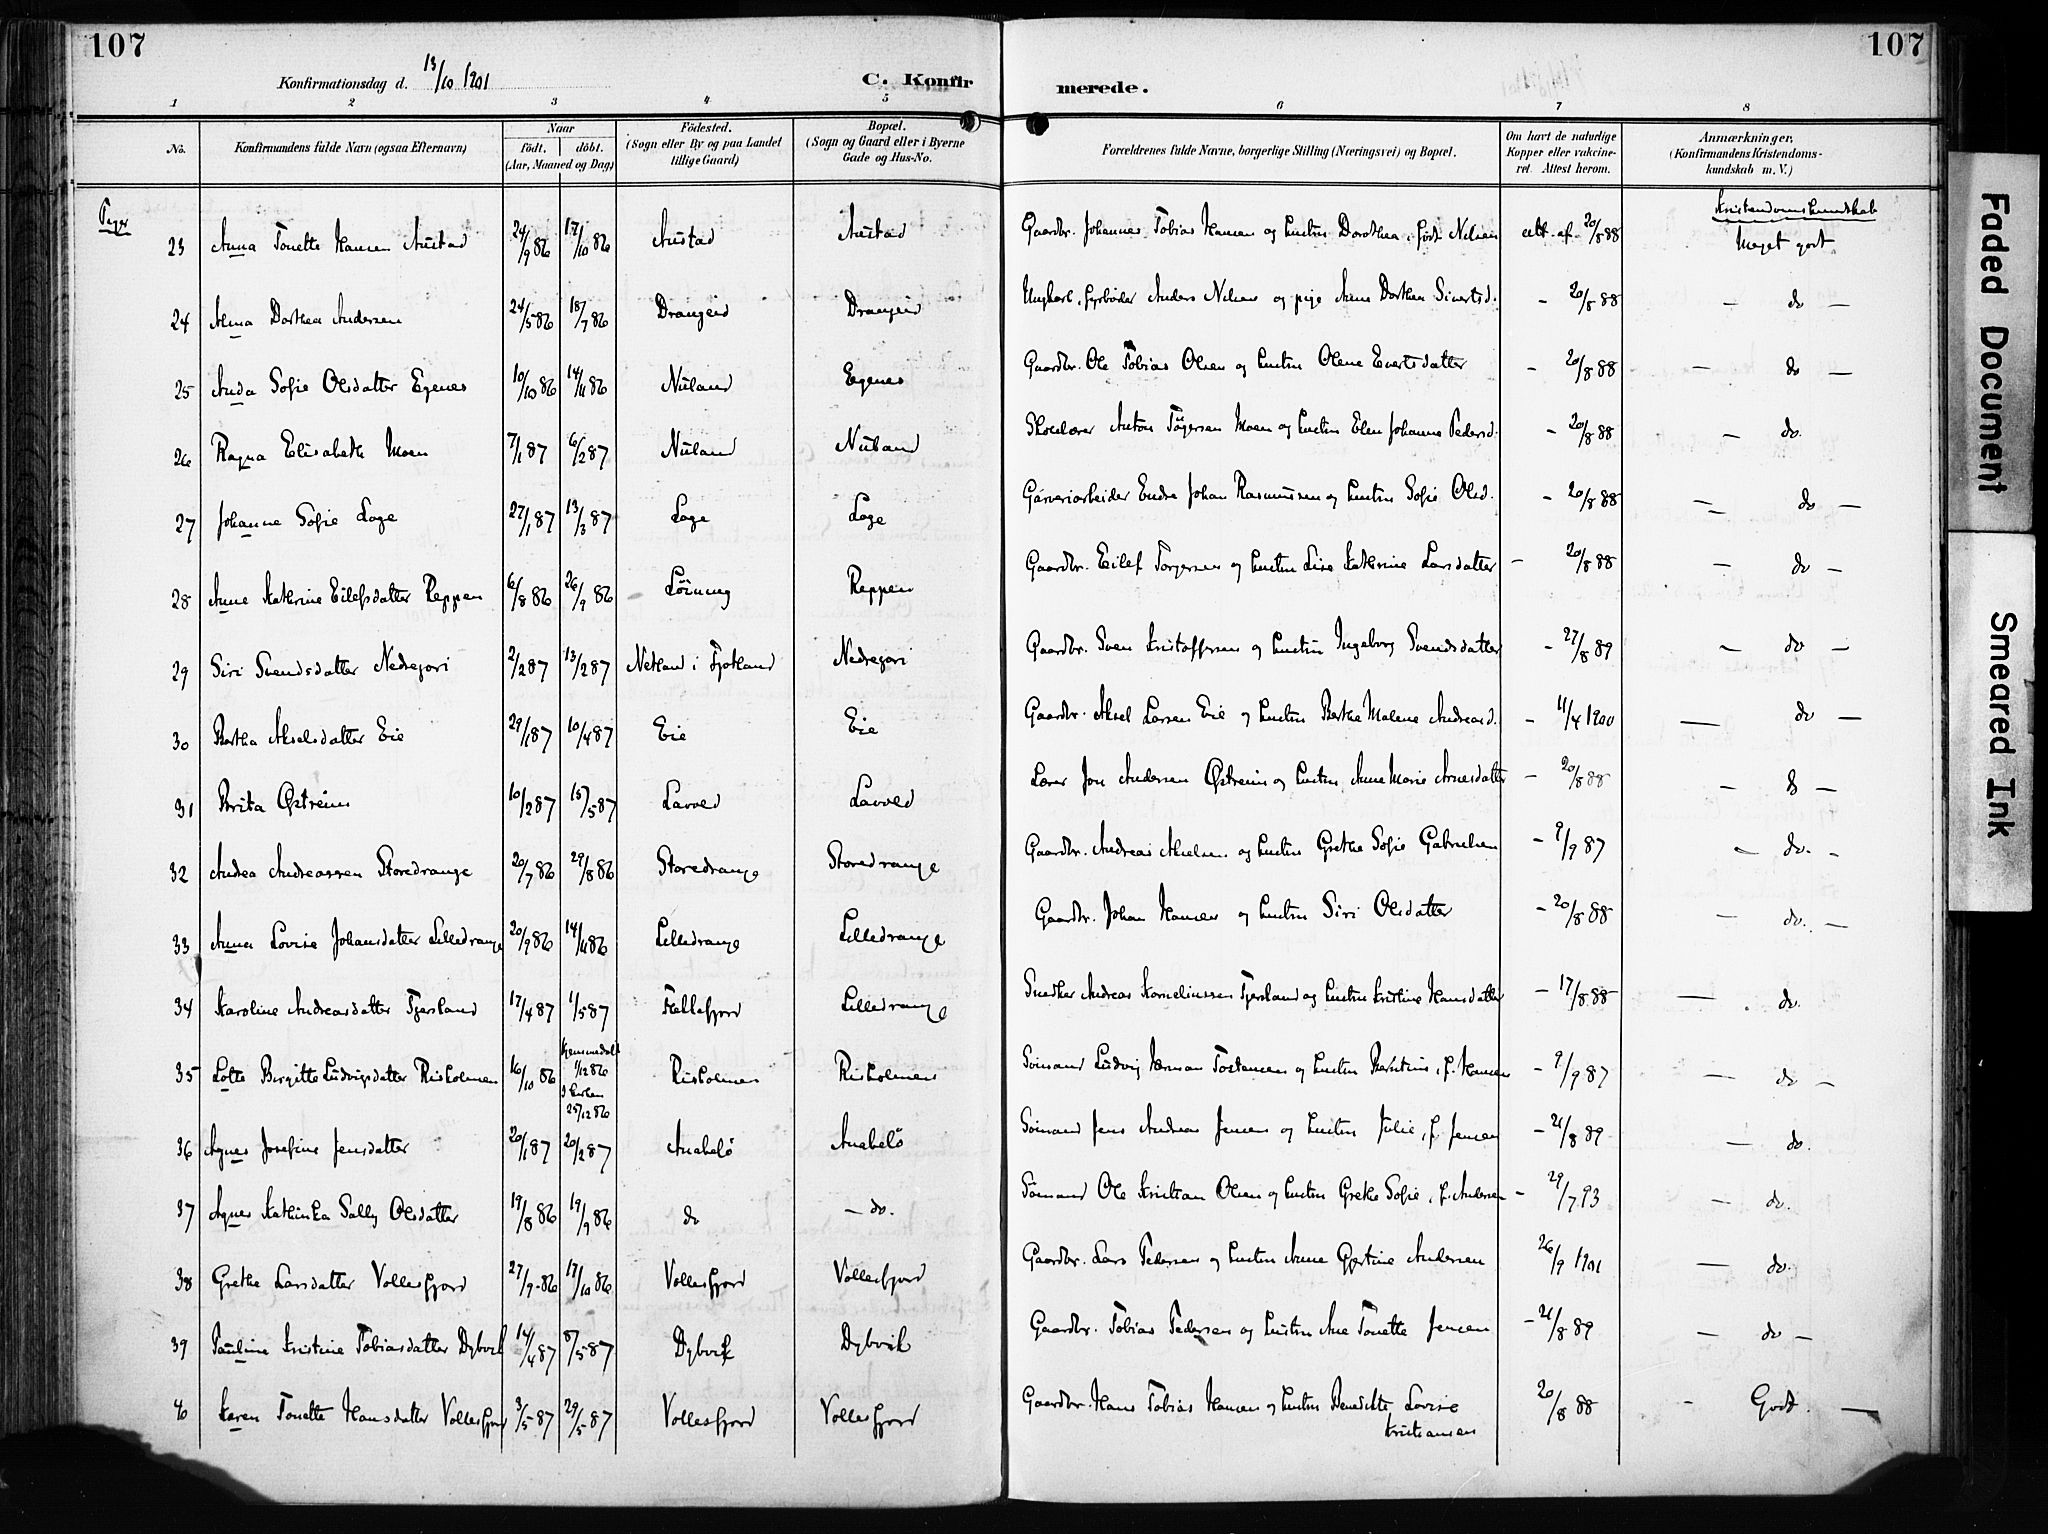 107
107
Konfirmationsdag d. 13/10 1901
C. Konfir
merede.
1 2 3 4 5 6 7 8
No. Konfirmandens fulde Navn (ogsaa Efternavn) Naar födt. döbt. (Aar, Maaned og Dag) Födested. (Sogn eller By og paa Landet tillige Gaard) Bopæl. (Sogn og Gaard eller i Byerne Gade og Hus-No. Forældrenes fulde Navne, borgerlige Stilling (Næringsvei) og Bopæl. Om havt de naturlige Kopper eller vakcineret. Attest herom. Anmærkninger. (Konfirmandens Kristendomskundskab m. V.)
Piger
Kristendomskundskab
23 Anna Tonette Hansen Austad 24/9 86 17/10 86 Austad Austad Gaardbr. Johannes Tobias Hansen og hustru Dorothea, født Nilsen att. af 20/8 88 Meget godt
24 Alma Dorthea Andersen 24/5 86 18/7 86 Drangeid Drangeid Ungkarl, fyrbøder Anders Nilsen og pige Anne Dorthea Sivertsd. - 20/8 88 - do -
25 Anda Sofie Olsdatter Egenes 10/10 86 14/11 86 Nuland Egenes Gaardbr. Ole Tobias Olsen og hustru Olene Evertsdatter - 20/8 88 - do -
26 Ragna Elisabeth Moen 7/1 87 6/2 87 Nuland Nuland Skolelærer Anton Tørgersen Moen og hustru Elen Johanne Pedersd. - 20/8 88 - do.
27 Johanne Sofie Loge 27/1 87 13/3 87 Loge Loge Garveriarbeider Endre Johan Rasmussen og hustru Sofie Olsd. - 20/8 88 - do -
28 Anne Kathrine Eilefsdatter Reppen 6/8 86 26/9 86 Løining Reppen Gaardbr. Eilef Torgersen og hustru Lise Kathrine Larsdatter - 20/8 88 - do -
29 Siri Svendsdatter Nedregori 2/2 87 13/2 87 Netland i Fjotland Nedregori Gaardbr. Sven Kristoffersen og hustru Ingeborg Svendsdatter - 27/8 89 - do -
30 Bertha Akselsdatter Eie 29/1 87 10/4 87 Eie Eie Gaardbr. Aksel Larsen Eie og hustru Berthe Malene Andreasd. - 11/4 1900 - do -
31 Brita Østreim 10/2 87 15/5 87 Lavold Lavold Lærer Jon Andersen Østreim og hustru Anne Marie Arnesdatter - 20/8 88 - do -
32 Andrea Andreassen Storedrange 20/7 86 29/8 86 Storedrange Storedrange Gaardbr. Andreas Akselsen og hustru Grethe Sofie Gabrielsen - 9/9 87 - do. -
33 Anna Lovise Johansdatter Lilledrange 20/9 86 14/11 86 Lilledrange Lilledrange Gaardbr. Johan Hansen og hustru Siri Olsdatter - 20/8 88 - do. -
34 Karoline Andreasdatter Fjersland 17/4 87 1/5 87 Fellefjord Lilledrange Snedker Andreas Korneliussen Fjersland og hustru Kristine Hansdatter - 17/8 88 - do.
35 Lotte Birgitte Ludvigsdatter Risholmen 16/10 86 Hjemmedøbt 1/12 86 I Kirken 25/12 86 Risholmen Risholmen Sømand Ludvig Herman Tostensen og hustru Berntine, f. Hansen - 9/9 87 - do -
36 Agnes Josefine Jensdatter 20/1 87 20/2 87 Anabelø Anabelø Sømand Jens Andreas Jensen og hustru Julie, f. Jensen - 21/8 89 - do.
37 Agnes Kathinka Sally Olsdatter 19/8 86 19/9 86 do - do. Sømand Ole Kristian Olsen og hustru Grethe Sofie, f. Andersen - 29/7 93 - do.
38 Grethe Larsdatter Vollesfjord 27/9 86 17/10 86 Vollesfjord Vollesfjord Gaardbr. Lars Pedersen og hustru Anne Gjertine Andersen 26/9 1901 - do.
39 Pauline Kristine Tobiasdatter Dybvik 14/4 87 8/5 87 Dybvik Dybvik Gaardbr. Tobias Pedersen og hustru Ane Tonette Jensen - 21/8 89 - do -
40 Karen Tonette Hansdatter Vollesfjord 3/5 87 29/5 87 Vollesfjord Vollesfjord Gaardbr. Hans Tobias Hansen og hustru Benedikte Lovise Kristiansen 20/8 88 - Godt. -
Faded Document
Smeared Ink